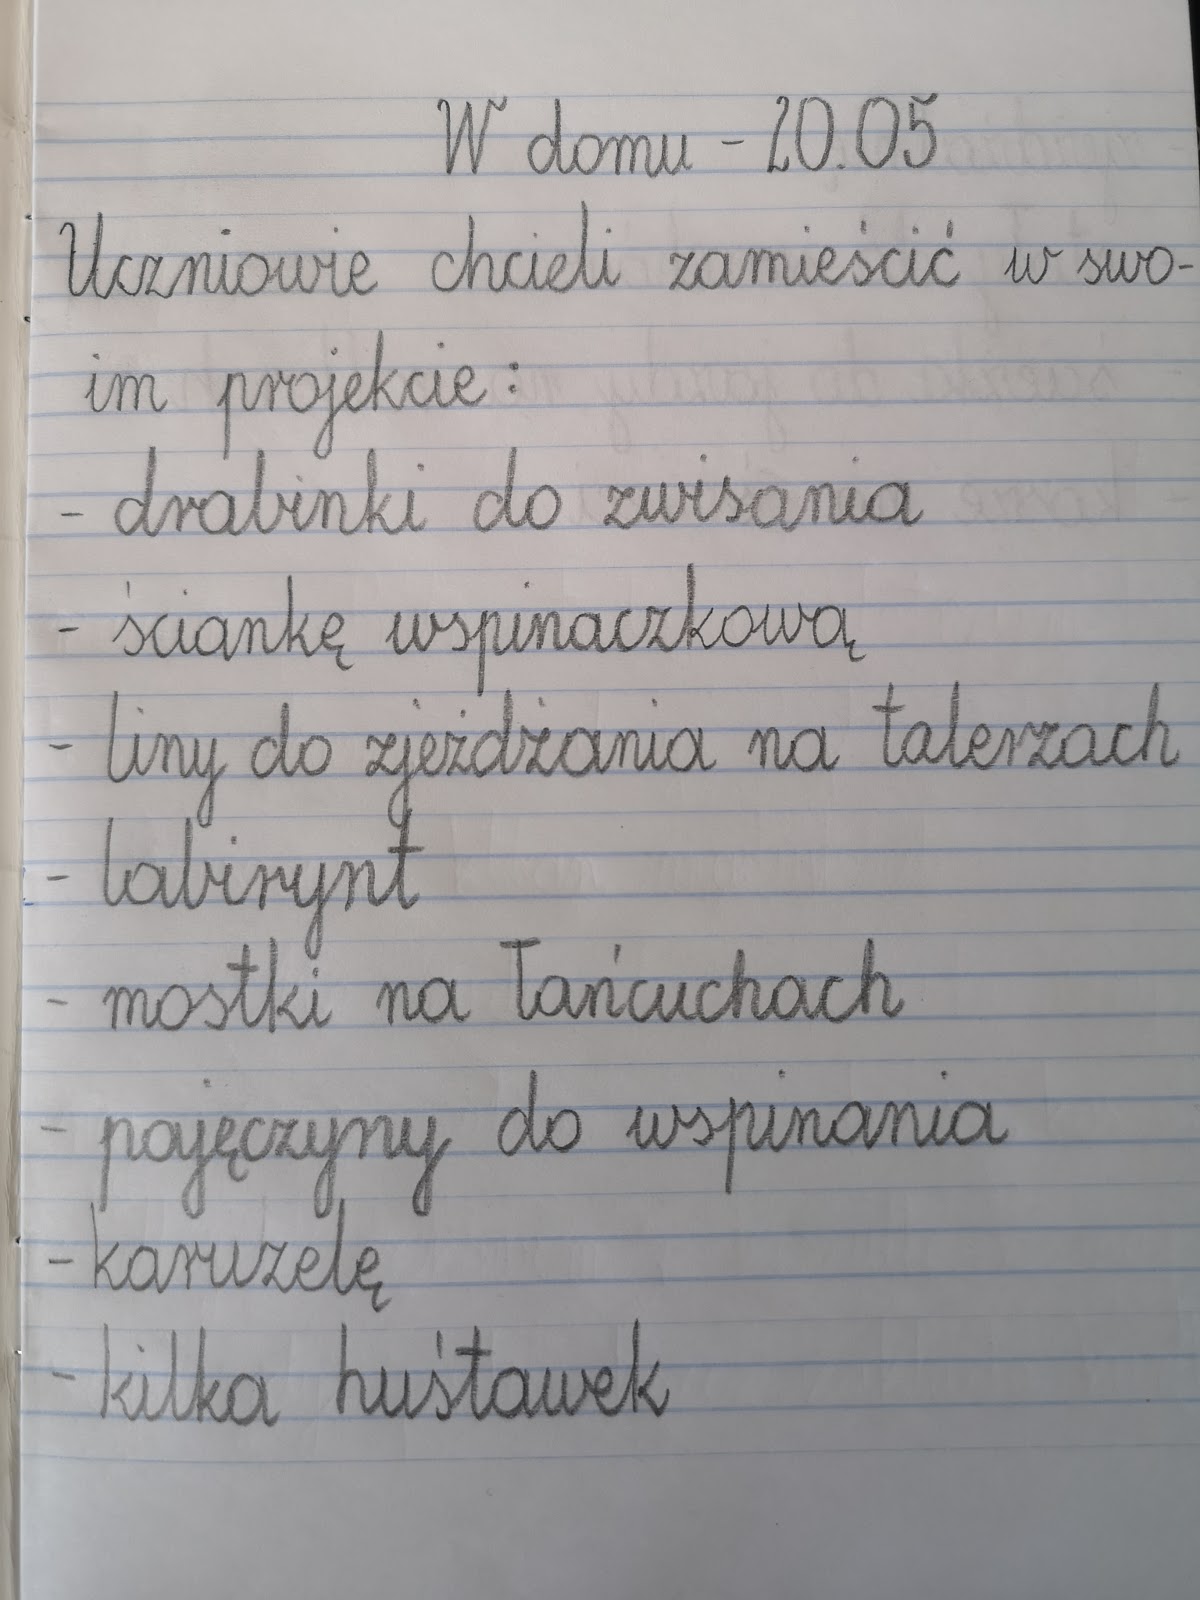 W domu - 20.05
Uczniowie chcieli zamieścić w swo-
im projekcie:
- drabinki do zwisania
- ściankę wspinaczkową
- liny do zjeżdżania na talerzach
- labirynt
- mostki na łańcuchach
- pajęczyny do wspinania
- karuzelę
- kilka huśtawek